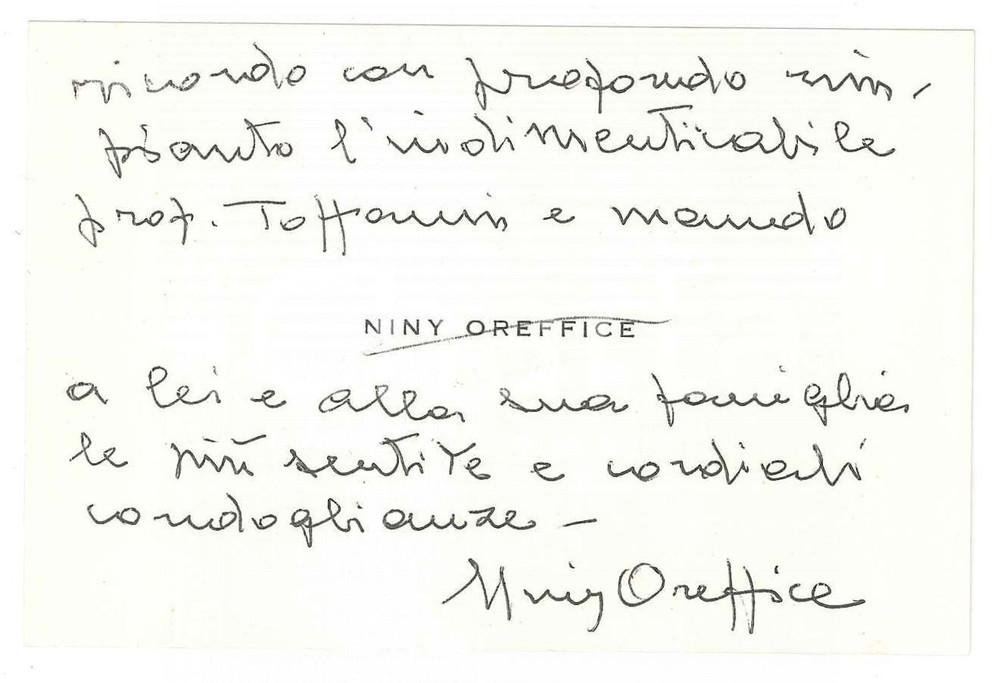 ricordo con profondo rim-
pianto l'indimenticabile
prof. Toffanin e mando
NINY OREFFICE
a lei e alla sua famiglia
le più sentite e cordiali
condoglianze –
Niny Oreffice